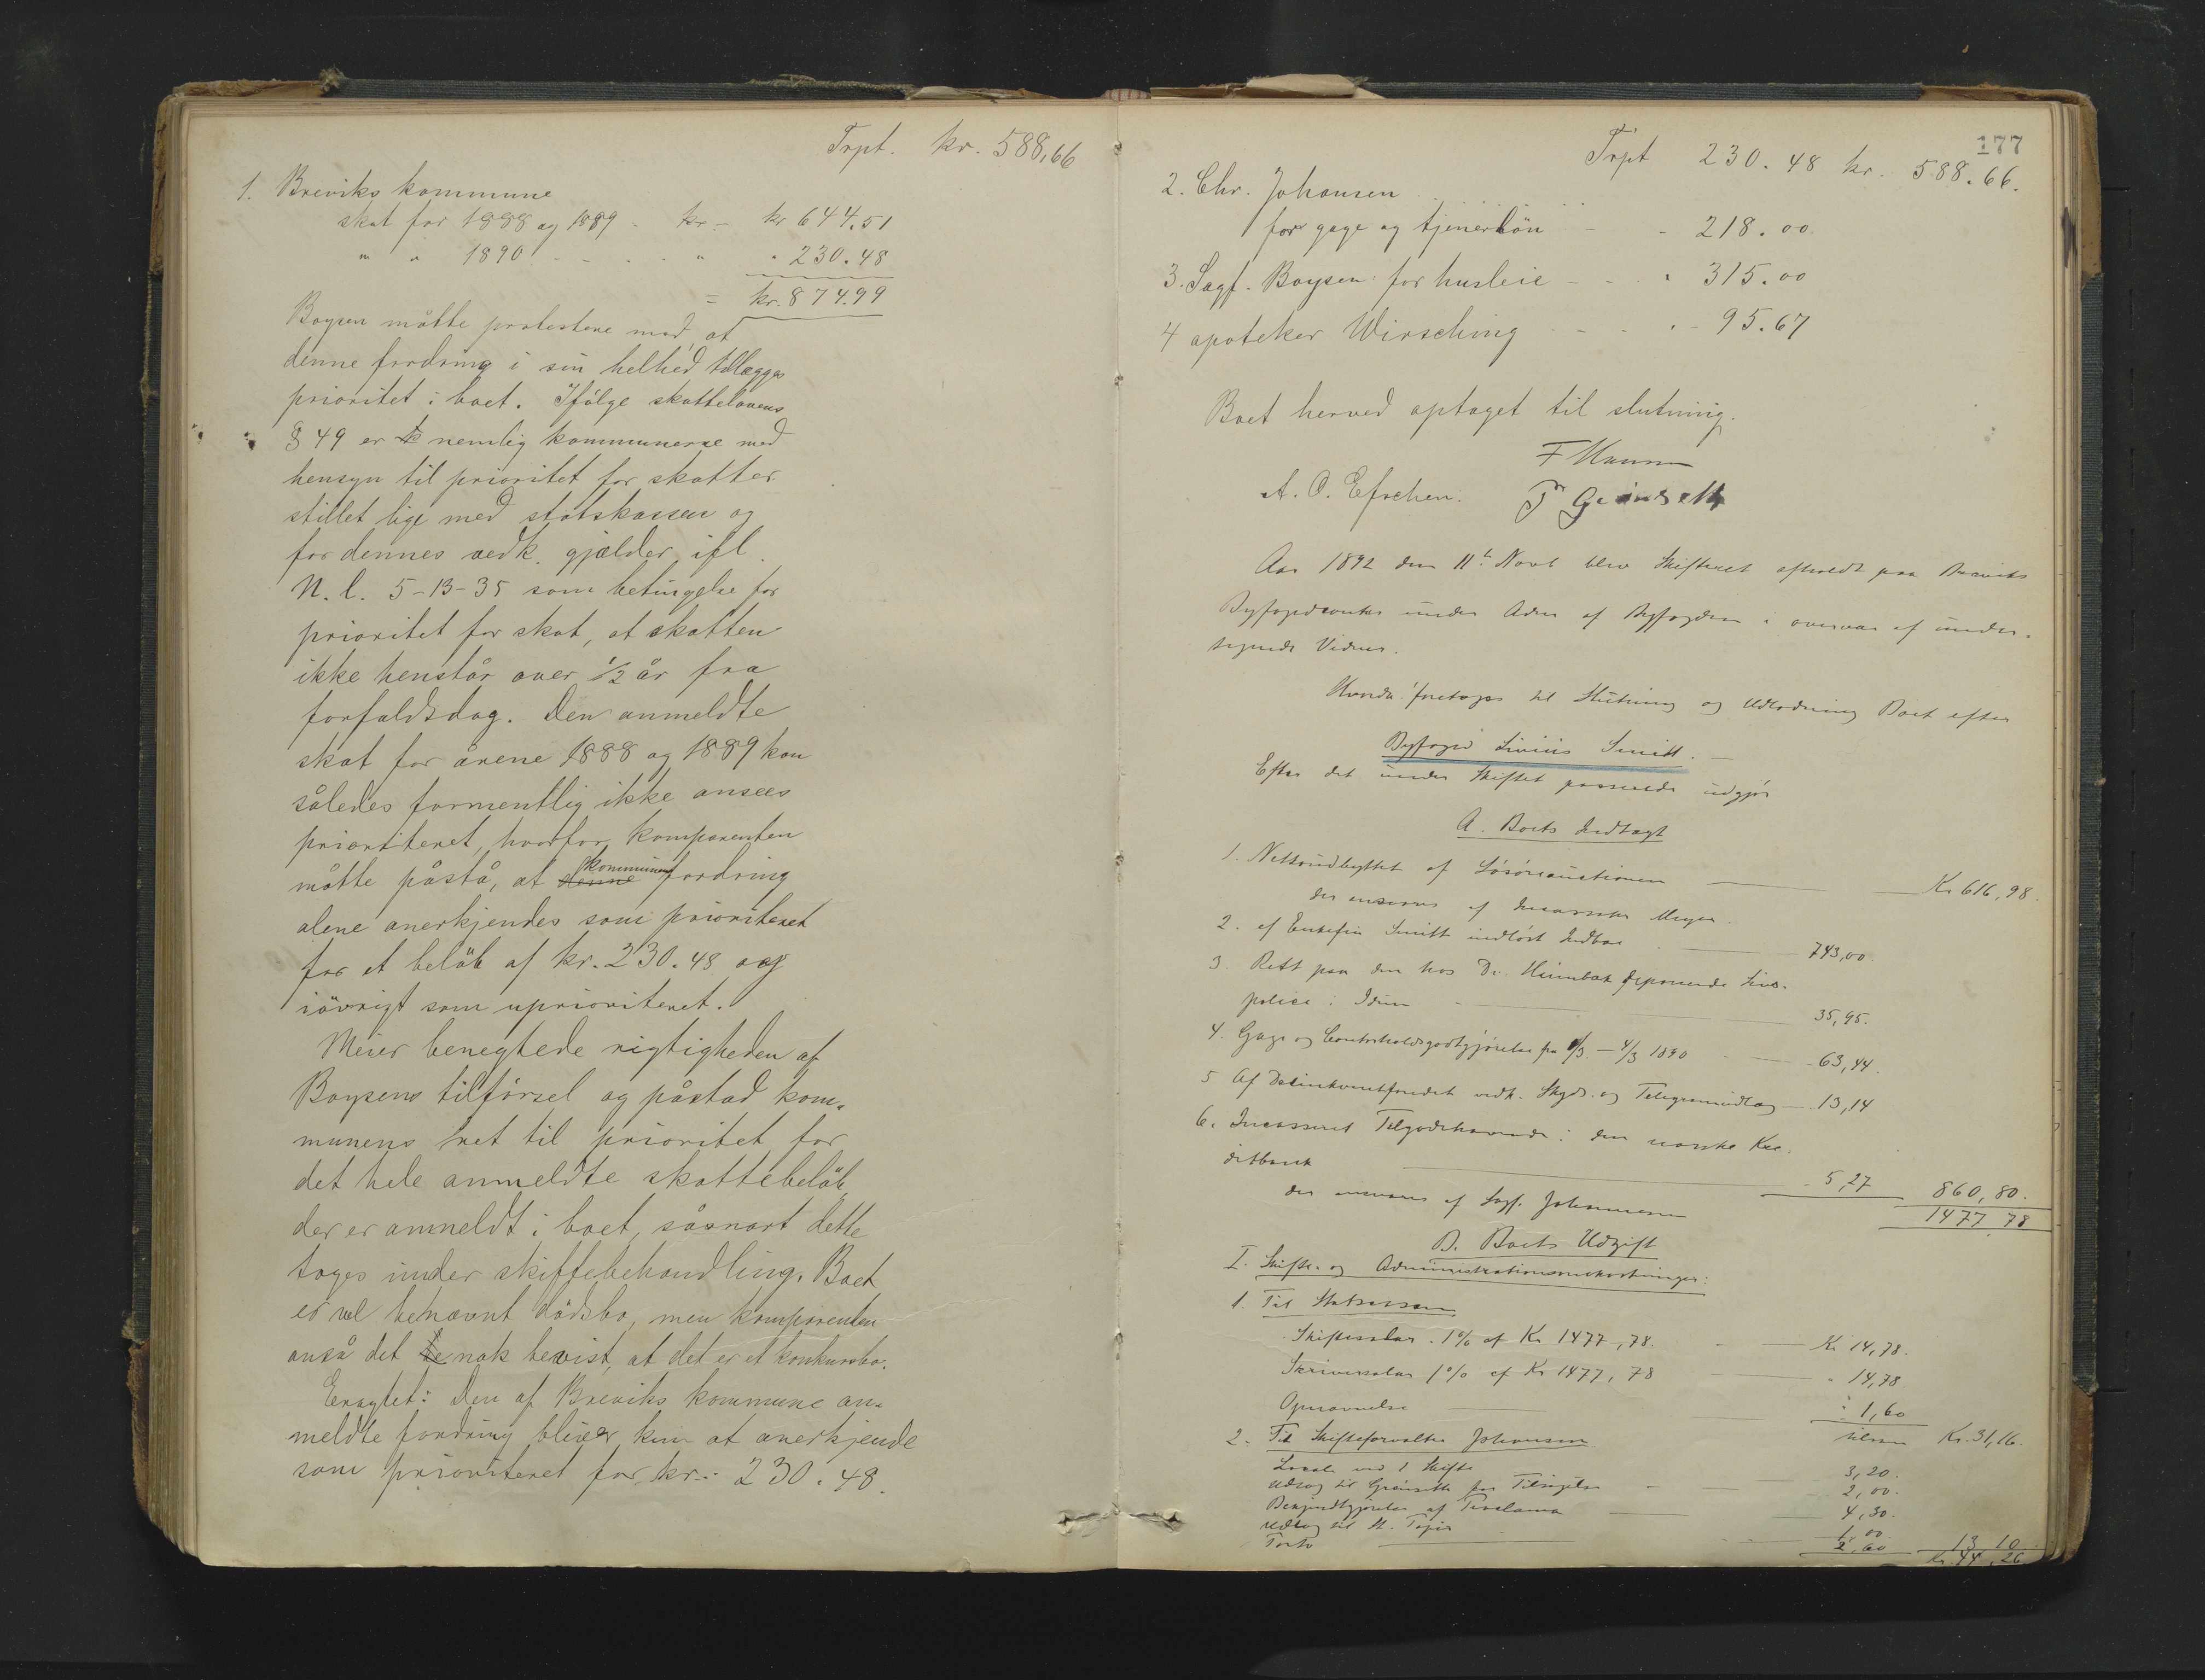 Trpt. kr. 588,66
1. Breviks kommune
skat for 1888 og 1889 - kr - kr 644.51
" " 1890 - - - - " " 230.48
= kr. 874.99
Boysen måtte protestere mod, at
denne fordring i sin helhed tillægges
prioritet i boet. Ifölge skattelovens
§ 49 er nemlig kommunerne med
hensyn til prioritet for skatter
stillet lige med statskassen og
for dennes vedk. gjælder ifl.
N. l. 5-13-35 som betingelse for
prioritet for skat, at skatten
ikke henstår over 1/2 år fra
forfaldsdag. Den anmeldte
skat for årene 1888 og 1889 kan
således formentlig ikke ansees
prioriteret, hvorfor komparenten
måtte påstå, at denne kommunens fordring
alene anerkjendes som prioriteret
for et belöb af kr. 230.48 og
iövrigt som uprioriteret.
Meier benegtede rigtigheden af
Boysens tilförsel og påstod kom-
munens ret til prioritet for
det hele anmeldte skattebelöb
der er anmeldt i boet, såsnart dette
toges under skiftebehandling. Boet
er vel benævnt dödsbo, men komparenten
anså det nok bevist, at det er et konkursbo.
Eragtet: Den af Breviks kommune an-
meldte fordring bliver kun at anerkjende
som prioriteret for kr: 230.48.
177
Trpt 230.48 kr. 588.66.
2. Chr. Johansen
for gage og tjenerlön - - 218.00
3. Sagf. Boysen for husleie - - " 315.00
4 apoteker Wirsching - - " - 95.67
Boet herved optaget til slutning.
F Hansen
A. O. Efschen. T Grönseth
Aar 1892 den 11te Novb blev Skifteret afholdt paa Breviks
Byfogedcontor under Adm af Byfogden i overvær af under-
tegnede Vidner.
Hvorda! foretoges til Slutning og Udlodning Boet efter
Byfoged Livius Smitt. -
Efter det under Skiftet passerede udgjör
A. Boets Indtægt
1. Nettoudbyttet af Lösöreauctionen — Kr 616,98.
der ansvares af Incassator Meyer.
2. af Enkefru Smitt indlöst Indbo — 743,00.
3. Rest paa den hos Dr. Heimbek deponerede Livs-
police i Idun — 35,95.
4. Gage og Contorholdsgodtgjörelse fra 1/3 - 4/3 1890 — 63,44.
5 Af Delinkventfondet vedk. Skyds- og Telegramudlæg — 13,14
6. Incasseret Tilgodehavende i den norske Kre-
ditbank — 5,27 860,80.
der ansvares af Sagf. Johannesen 1477,78
B. Boets Udgift
I. Skifte- og Administrationsomkostninger:
1. Til Statscassen
Skiftesalar 1% af Kr 1477,78. — Kr 14,78.
Skriversalar 1% af Kr 1477,78 — " 14,78.
Opnævnelse — " 1,60
tilsam Kr. 31,16.
2. Til Skifteforvalter Johansen
Locale ved 1 Skifte 3,20.
Udlæg til Grönseth for Tilsigelse — 2,00.
Bekjendtgjörelse af Proclama — 4,30.
Udlæg til St. Papir 1,00.
Porto — 2,60 13,10
Kr. 44,26